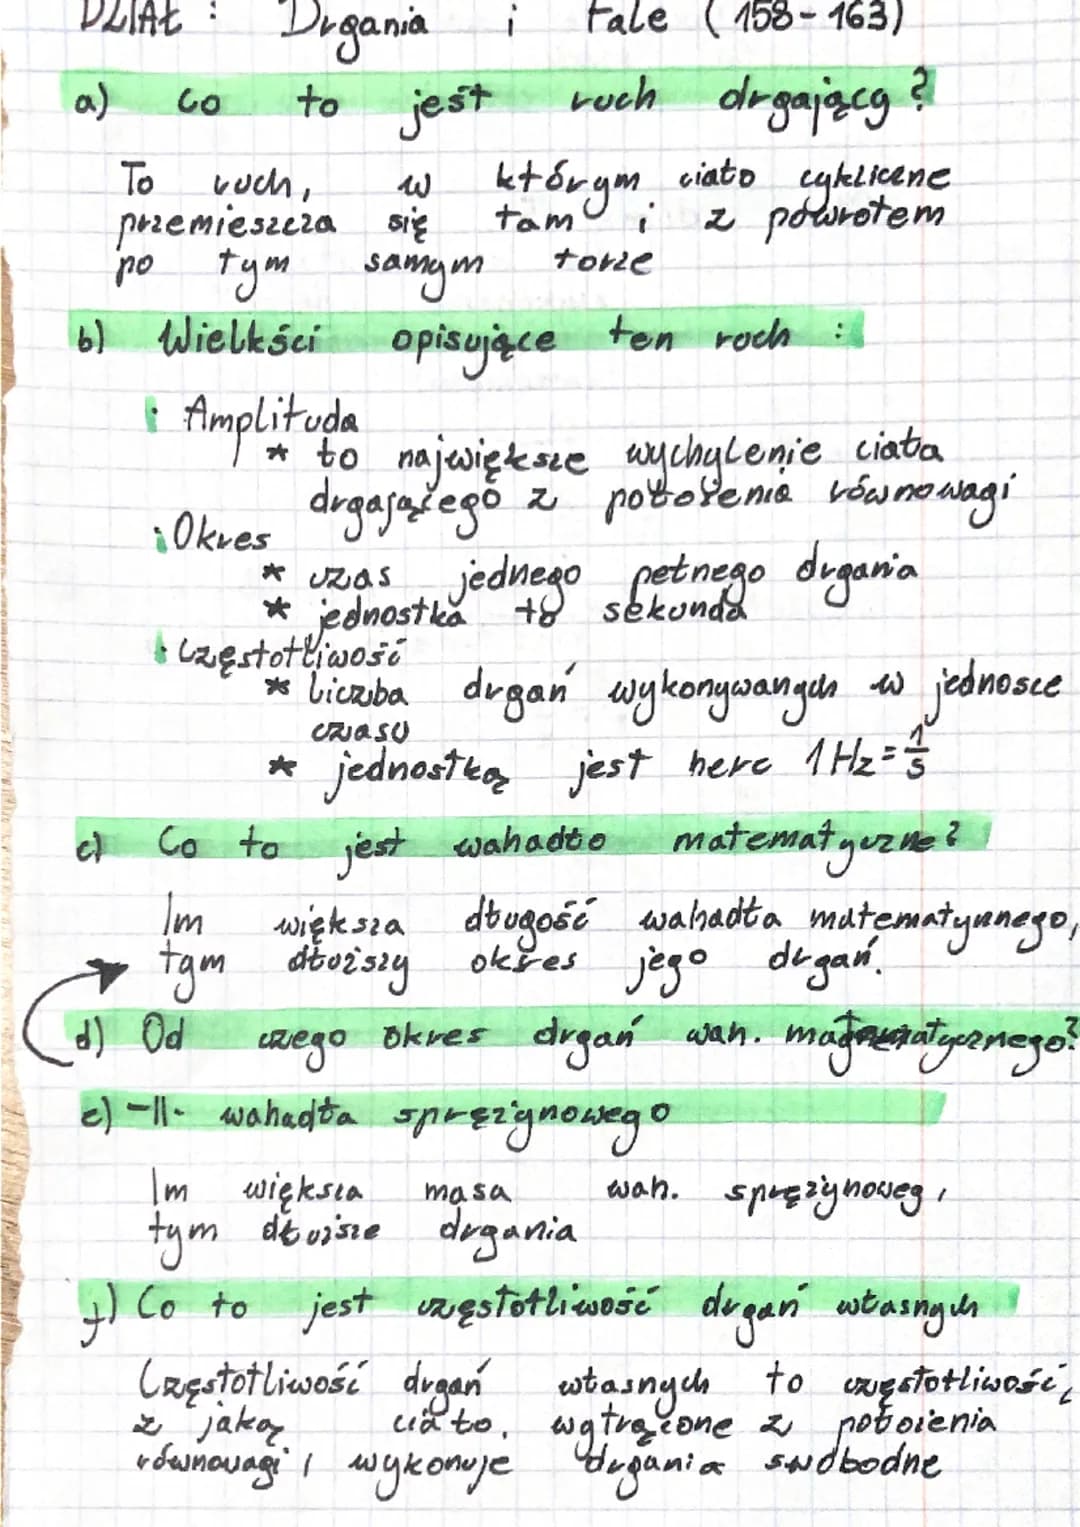 DZIAŁ : Drgania i Fale (158-163)
a) Co to jest ruch drgający?
To ruch, w którym ciało cykliczne
przemieszcza się tam i z powrotem
po tym samym torze
b) Wielkści opisujące ten ruch :
Amplituda
* to największe wychylenie ciała
drgającego z położenia równowagi
Okres
* czas jednego pełnego drgania
* jednostka to sekunda
Częstotliwość
* liczba drgań wykonywanych w jednosce
czasu
* jednostką jest herc 1Hz=1/s
c) Co to jest wahadło matematyczne?
Im większa długość wahadła matematynnego,
tym dłuższy okres jego drgań.
d) Od czego okres drgań wah. matematycznego?
e) -||- wahadła sprężynowego
Im większa masa wah. sprężynoweg,
tym dłuższe drgania
f) Co to jest częstotliwość drgań własnych
Częstotliwość drgań własnych to częstotliwość,
z jaką ciało, wytrącone z położenia
równowagi, wykonuje drgania swobodne